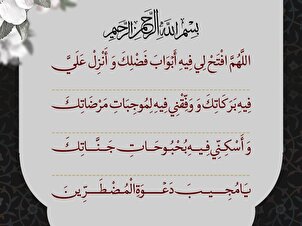 بسم الله الرحمن الرحیم
اللَّهُمَّ افْتَحْ لِي فِيهِ أَبْوَابَ فَضْلِكَ وَ أَنْزِلْ عَلَيَّ
فِيهِ بَرَكَاتِكَ وَ وَفِّقْنِي فِيهِ لِمُوجِبَاتِ مَرْضَاتِكَ
وَ أَسْكِنِّي فِيهِ بُحْبُوحَاتِ جَنَّاتِكَ
يَا مُجِيبَ دَعْوَةِ الْمُضْطَرِّينَ